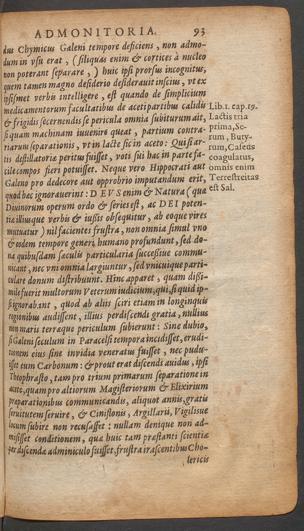 ADMONITORIA. 93
dus Chymicus Galeni tempore deficiens, non admo-
dum in usu erat, (siliquas enim & cortices à nucleo
non poterant separare,) huic ipsi prorsus incognitus,
quem tamen magno desiderio desideravit inscius, ut ex
ipsismet verbis intelligere, est quando de simplicium
medicamentorum facultatibus de aceti partibus calidis
& frigidis secernendis se pericula omnia subiturum ait,
si quam machinam invenire queat, partium contra-
riarum separationis, ut in lacte sic in aceto: Qui si ar-
tis destillatoriæ peritus fuisset, voti sui hac in parte fa-
cile compos fieri potuisset. Neque vero Hippocrati aut
Galeno pro dedecore aut opprobrio imputandum erit,
quod hæc ignoraverint: DEUS enim & Natura (qua
Divinorum operum ordo & series est, ac DEI poten-
tia illiusque verbis & iussis obsequitur, ab eoque vires
mutuatur) nil facientes frustra, non omnia simul uno
& eodem tempore generi humano profundunt, sed do-
na quibusdam sæculis particularia successive commu-
nicant, nec uni omnia largiuntur, sed unicuique parti-
culare donum distribuunt. Hinc apparet, quam dissi-
mile fuerit multorum Veterum iudicium, qui, si quid ip-
si ignorabant, quod ab aliis sciri etiam in longinquis
regionibus audissent, illius perdiscendi gratia, nullius
non maris terraque periculum subierunt: Sine dubio,
si Galeni seculum in Paracelsi tempora incidisset, erudi-
tionem eius sine invidia veneratus fuisset, nec pudu-
isset eum Carbonum: & prout erat discendi avidus, ipsi
Theophrasto, tam pro trium primarum separatione in
aceto, quam pro altiorum Magisteriorum & Elixirium
præparationibus communicandis, aliquot annis, gratis
servitutem servire, & Cinistonis, Argillarii, Vigilisve
locum subire non recusasset: nullam denique non ad-
misisset conditionem, qua huic tam præstanti scientiæ
perdiscendæ adminiculo fuisset, frustra irascentibus Cho-
lericis
Lib. 1. cap. 19.
Lactis tria
prima, Se-
rum, Buty-
rum, Caseus
coagulatus,
omnis enim
Terrestreitas
est Sal.